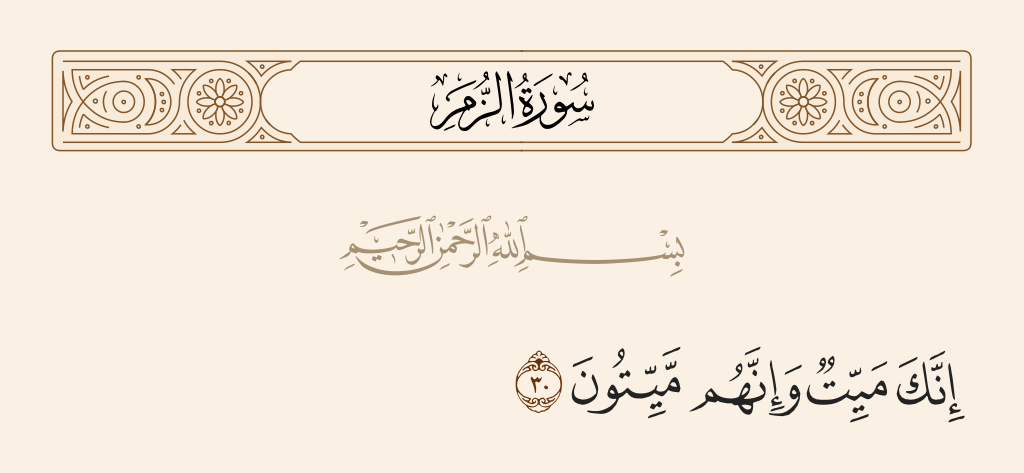 سُورَةُ الزُّمَرِ
بِسْمِ ٱللَّهِ ٱلرَّحْمَٰنِ ٱلرَّحِيمِ
إِنَّكَ مَيِّتٌ وَإِنَّهُم مَّيِّتُونَ ٣٠